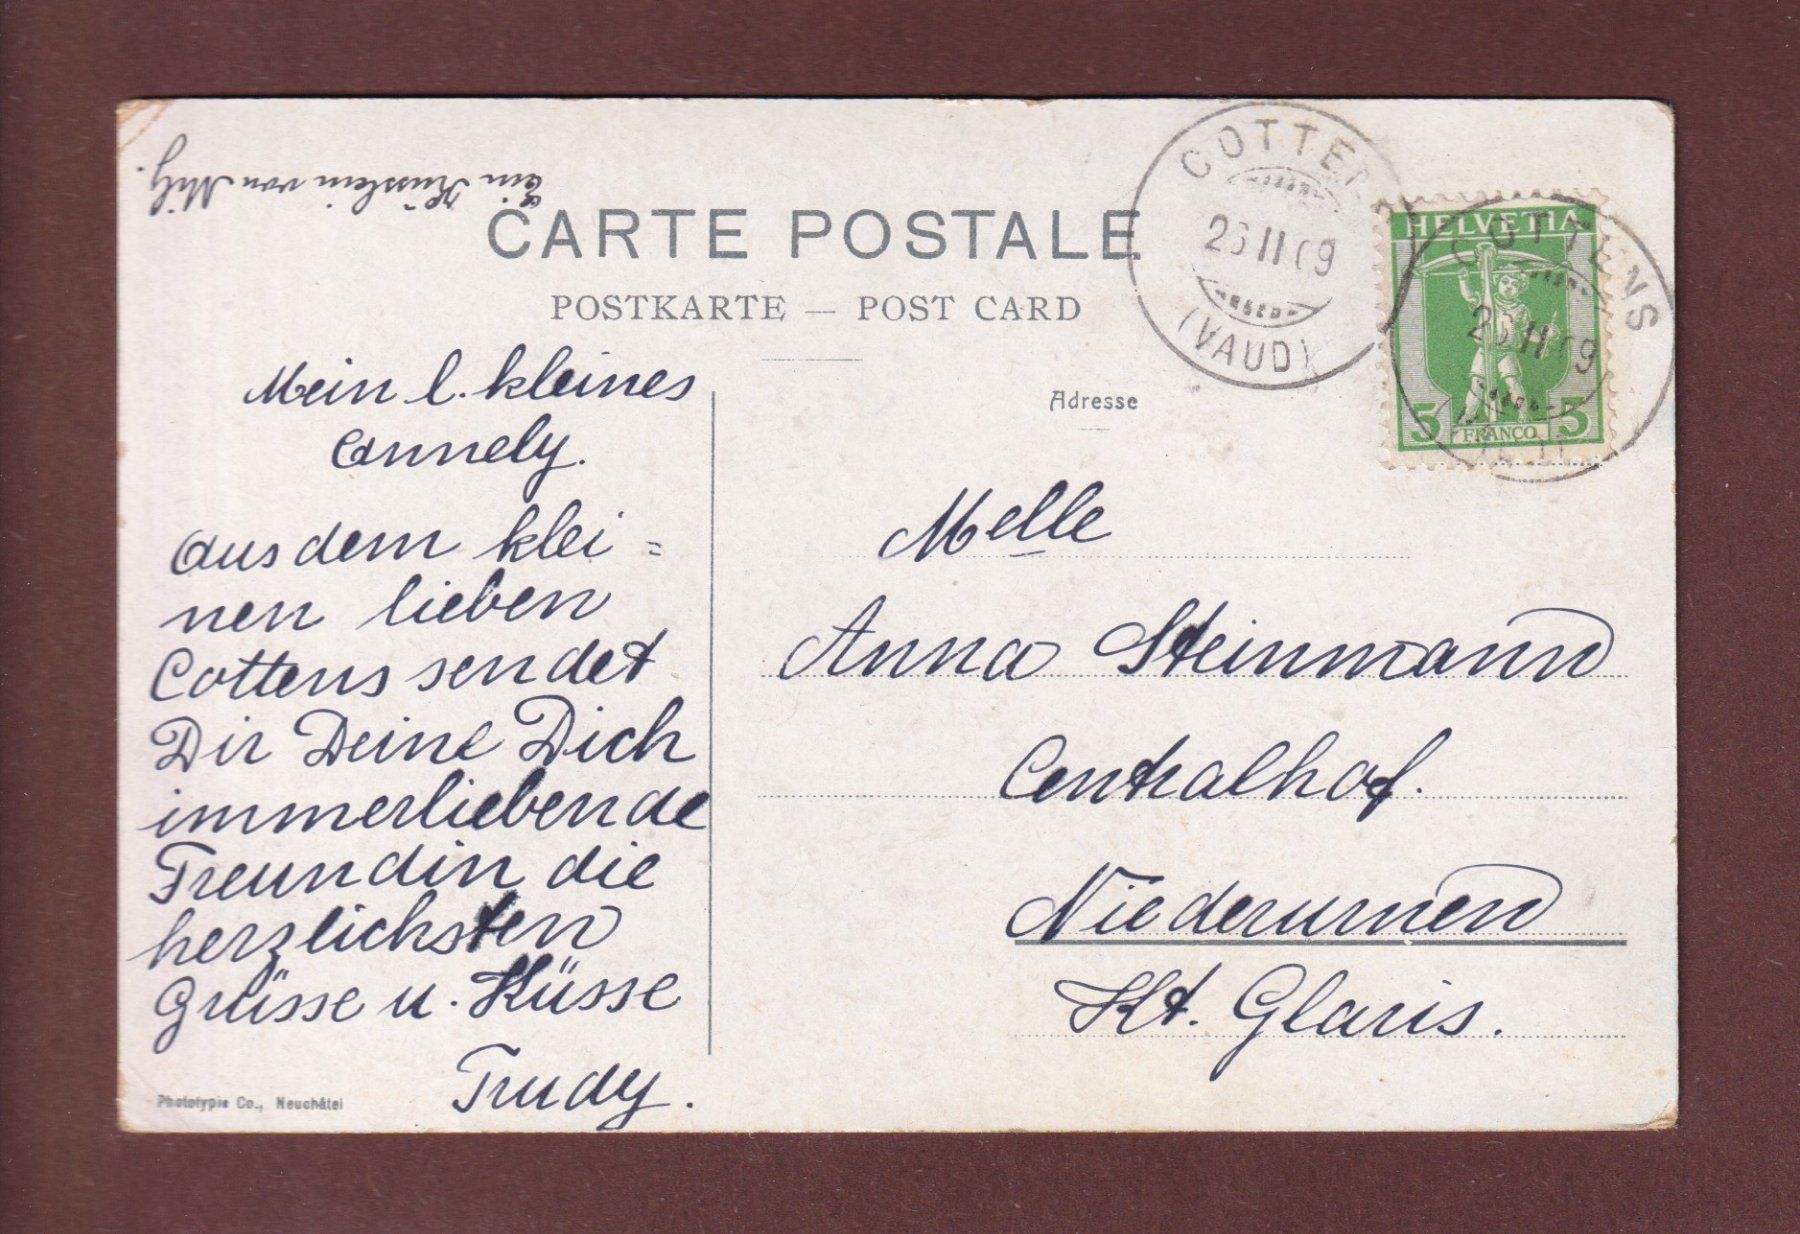 Ein Küsslein von Mily.
CARTE POSTALE
POSTKARTE — POST CARD
COTTENS
26 II 09
(VAUD)
HELVETIA
5 FRANCO 5
COTTENS
26 II 09
Mein l. kleines
Annely.
Aus dem klei=
nen lieben
Cottens sendet
Dir Deine Dich
immerliebende
Freundin die
herzlichsten
Grüsse u. Küsse
Trudy.
Phototypie Co., Neuchâtel
Adresse
Melle
Anna Steinmann
Centralhof.
Niederurnen
Kt. Glaris.